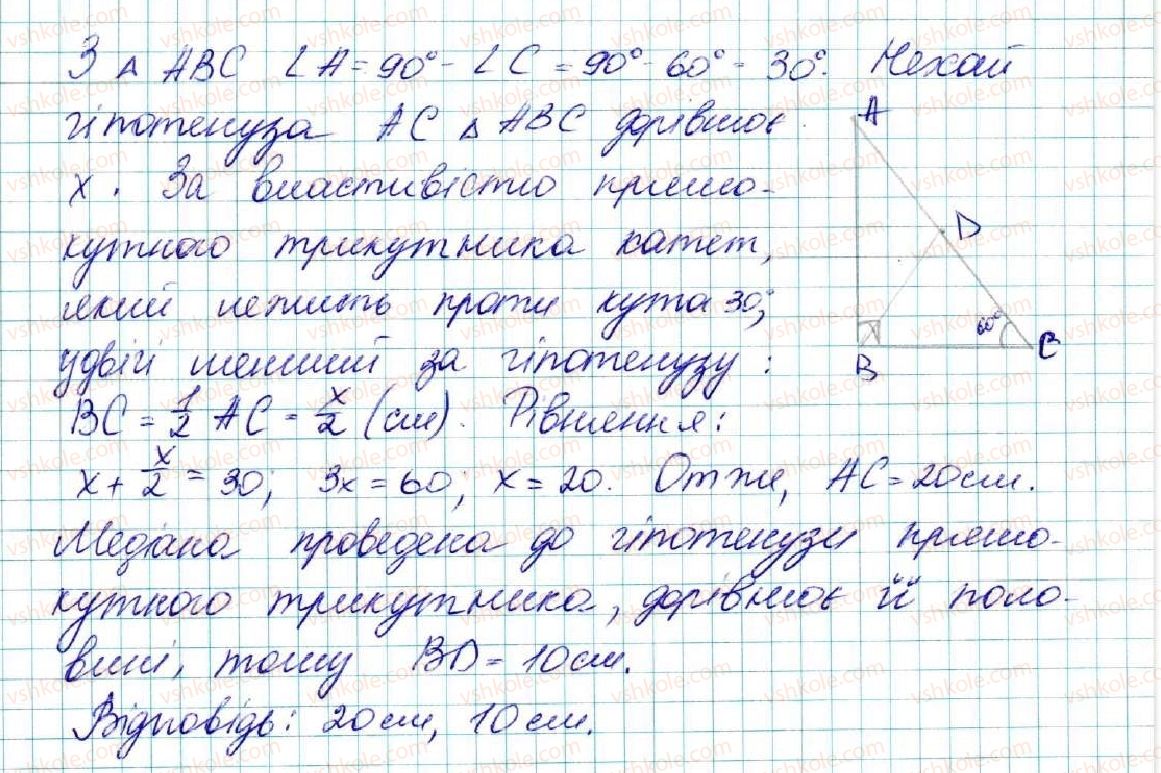 З △ ABC ∠A = 90° - ∠C = 90° - 60° = 30°. Нехай
гіпотенуза AC △ ABC дорівнює
x. За властивістю прямо-
кутного трикутника катет,
який лежить проти кута 30°,
удвічі менший за гіпотенузу:
BC = 1/2 AC = x/2 (см). Рівняння:
x + x/2 = 30; 3x = 60; x = 20. Отже, AC = 20 см.
Медіана проведена до гіпотенузи прямо-
кутного трикутника, дорівнює її поло-
вині, тому BD = 10 см.
Відповідь: 20 см, 10 см.
A
D
60°
B
C
vshkole.com